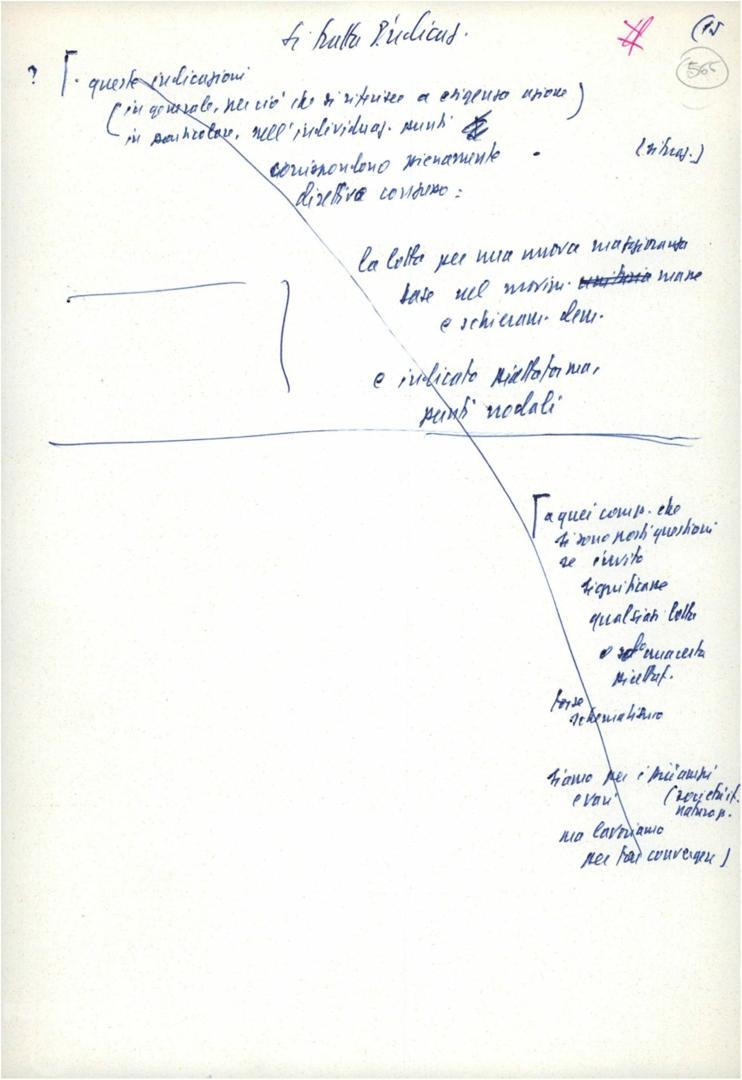 si tratta d'indicaz.
(15
565
? [. queste indicazioni
(in generale, per ciò che si riferisce a esigenza azione)
in particolare, nell'individuaz. punti
corrispondono pienamente .
(situaz.)
direttiva congresso:
la lotta per una nuova maggioranza
base nel movim. unitario mane
e schieram. dem.
e indicato piattaforma,
punti nodali
[a quei comp. che
si sono posti questioni
se invito
significasse
qualsiasi lotta
o solo una certa
piattaf.
forse
schematismo
siamo per i più ampi
e vari
ma lavoriamo
per far convergere)